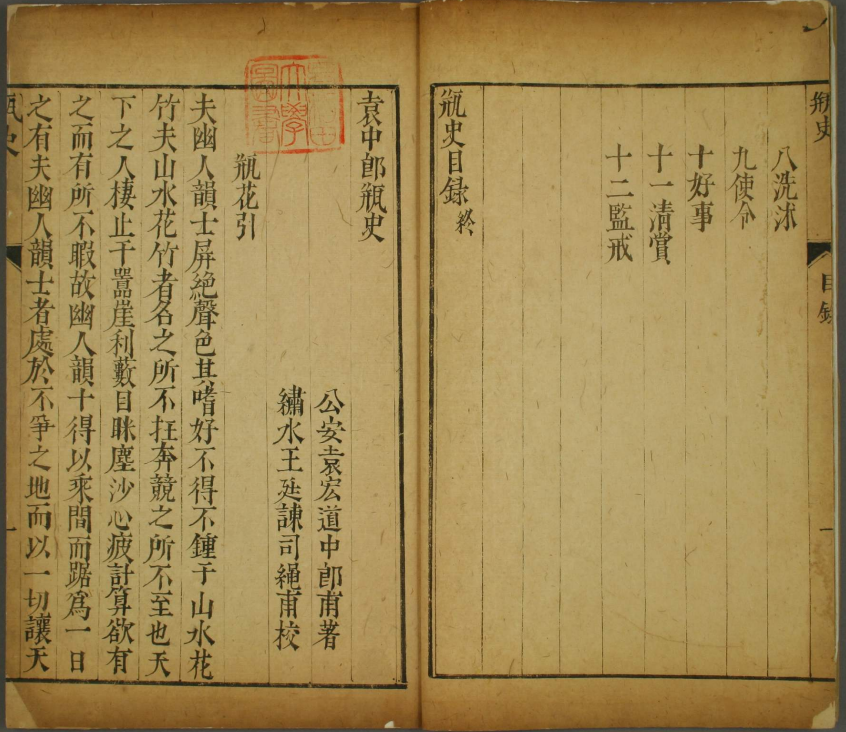 瓶史
目錄
一
八洗沐
九使令
十好事
十一清賞
十二監戒
瓶史目錄終
袁中郎瓶史
公安袁宏道中郎甫著
繡水王廷諫司繩甫校
瓶花引
夫幽人韻士屏絶聲色其嗜好不得不鍾于山水花
竹夫山水花竹者名之所不在奔競之所不至也天
下之人棲止于嚣崖利藪目眯塵沙心疲計算欲有
之而有所不暇故幽人韻士得以乘間而踞爲一日
之有夫幽人韻士者處於不爭之地而以一切讓天
瓶史
一